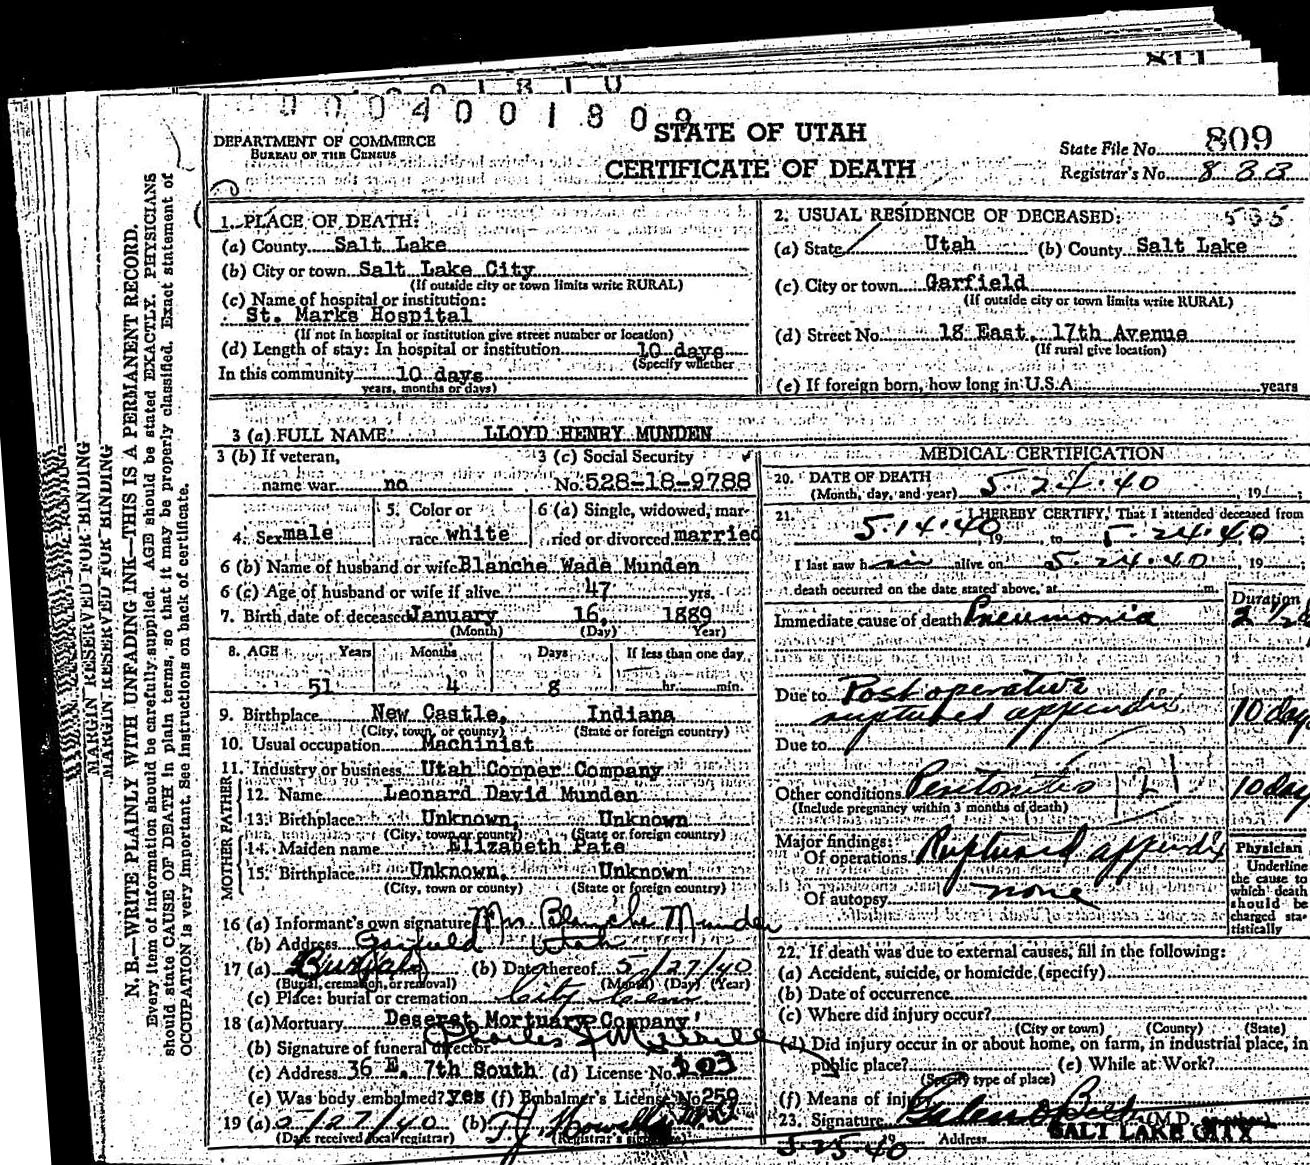 811
0004001809
STATE OF UTAH
CERTIFICATE OF DEATH
DEPARTMENT OF COMMERCE
BUREAU OF THE CENSUS
State File No. 809
Registrar's No. 833
MARGIN RESERVED FOR BINDING
MARGIN RESERVED FOR BINDING
N. B.—WRITE PLAINLY WITH UNFADING INK—THIS IS A PERMANENT RECORD.
Every item of information should be carefully supplied. AGE should be stated EXACTLY. PHYSICIANS
should state CAUSE OF DEATH in plain terms, so that it may be properly classified. Exact statement of
OCCUPATION is very important. See instructions on back of certificate.
1. PLACE OF DEATH:
(a) County Salt Lake
(b) City or town Salt Lake City
(If outside city or town limits write RURAL)
(c) Name of hospital or institution:
St. Marks Hospital
(If not in hospital or institution give street number or location)
(d) Length of stay: In hospital or institution 10 days
(Specify whether
In this community 10 days
years, months or days)
2. USUAL RESIDENCE OF DECEASED:
(a) State Utah (b) County Salt Lake
(c) City or town Garfield
(If outside city or town limits write RURAL)
(d) Street No. 18 East, 17th Avenue
(If rural give location)
(e) If foreign born, how long in U.S.A. years
3 (a) FULL NAME LLOYD HENRY MUNDEN
3 (b) If veteran,
name war no
3 (c) Social Security
No. 528-18-9788
4. Sex male
5. Color or
race white
6 (a) Single, widowed, mar-
ried or divorced married
6 (b) Name of husband or wife Blanche Wade Munden
6 (c) Age of husband or wife if alive 47 yrs.
7. Birth date of deceased January 16, 1889
(Month) (Day) (Year)
8. AGE Years Months Days If less than one day
51 4 8 hr. min.
9. Birthplace New Castle, Indiana
(City, town, or county) (State or foreign country)
10. Usual occupation Machinist
11. Industry or business Utah Copper Company
FATHER
12. Name Leonard David Munden
13. Birthplace Unknown, Unknown
(City, town or county) (State or foreign country)
MOTHER
14. Maiden name Elizabeth Pate
15. Birthplace Unknown, Unknown
(City, town or county) (State or foreign country)
16 (a) Informant's own signature Mrs Blanche Munden
(b) Address Garfield Utah
17 (a) Burial (b) Date thereof 5/27/40
(Burial, cremation, or removal) (Month) (Day) (Year)
(c) Place: burial or cremation City Cem
18 (a) Mortuary Deseret Mortuary Company
(b) Signature of funeral director Charles
(c) Address 36 E. 7th South (d) License No. 103
(e) Was body embalmed? yes (f) Embalmer's License No. 259
19 (a) 5/27/40 (b) T.J. Howells
(Date received local registrar) (Registrar's signature)
MEDICAL CERTIFICATION
20. DATE OF DEATH
(Month, day, and year) 5-24-40, 19
21. I HEREBY CERTIFY, That I attended deceased from
5-14-40, 19 to 5-24-40
I last saw him alive on 5-24-40, 19
death occurred on the date stated above, at m.
Duration
Immediate cause of death Pneumonia
Due to Post operative
ruptured appendix 10 day
Due to
Other conditions Peritonitis 121 10 day
(Include pregnancy within 3 months of death)
Major findings:
Of operations Ruptured appendix
Of autopsy none
Physician
Underline
the cause to
which death
should be
charged sta-
tistically
22. If death was due to external causes, fill in the following:
(a) Accident, suicide, or homicide (specify)
(b) Date of occurrence
(c) Where did injury occur?
(City or town) (County) (State)
(d) Did injury occur in or about home, on farm, in industrial place, in
public place? (e) While at Work?
(Specify type of place)
(f) Means of injury
23. Signature (M.D.
5-25-40 19 Address SALT LAKE CITY